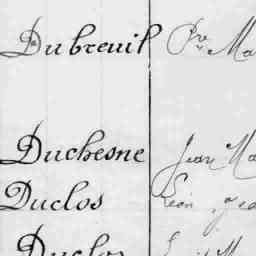 Dubreuil Pre Ma
Duchesne Jean Ma
Duclos Léon, Jea
Duclos